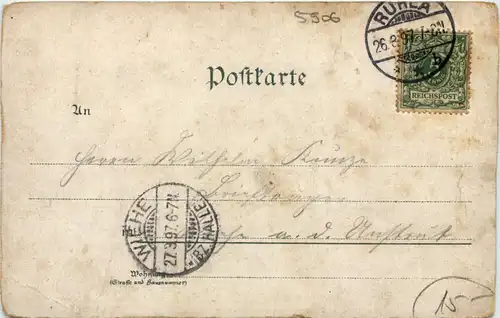 5506
RUHLA
26.8.97
REICHSPOST
Postkarte
An
Herrn Wilhelm Kunze
WIEHE
27.8.97. 6-7N.
(BZ. HALLE)
in
a. d. Unstrut
Wohnung
(Straße und Hausnummer)
15-